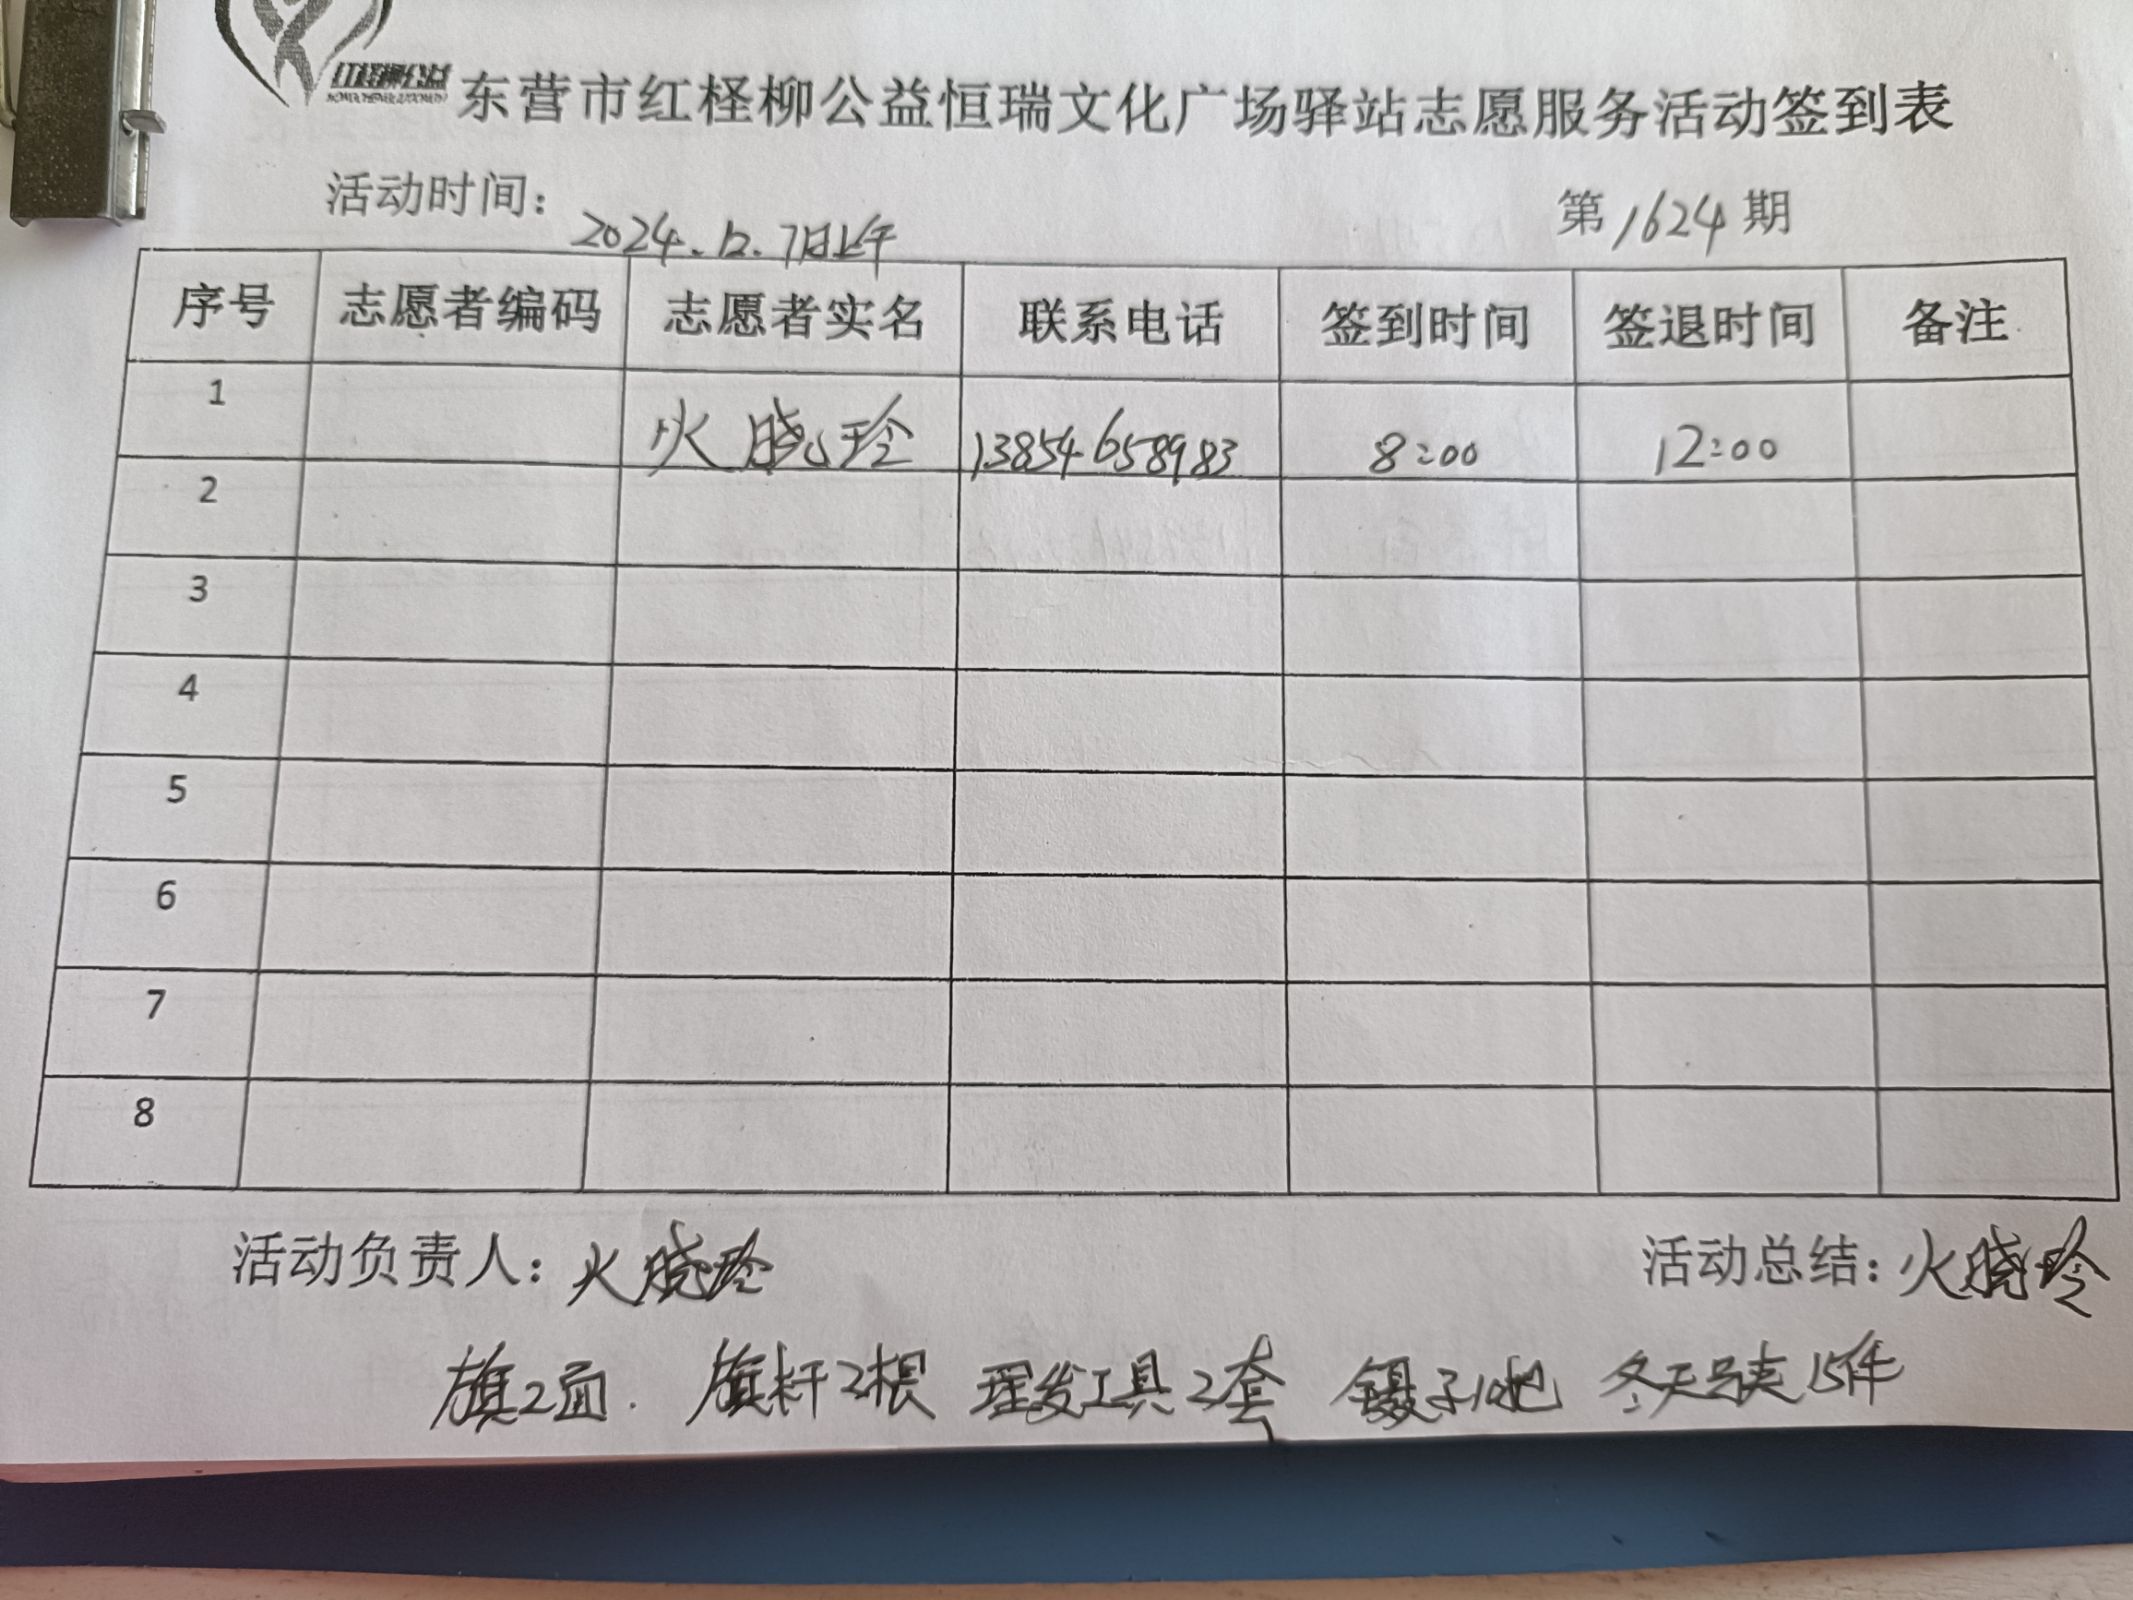 红柽柳公益
东营市红柽柳公益恒瑞文化广场驿站志愿服务活动签到表
活动时间: 2024.12.7日上午 第1624期
序号 志愿者编码 志愿者实名 联系电话 签到时间 签退时间 备注
1 火晓玲 13854658983 8:00 12:00
2
3
4
5
6
7
8
活动负责人: 火晓玲 活动总结: 火晓玲
旗2面. 旗杆2根 理发工具2套 镊子10把 冬天马夹15件